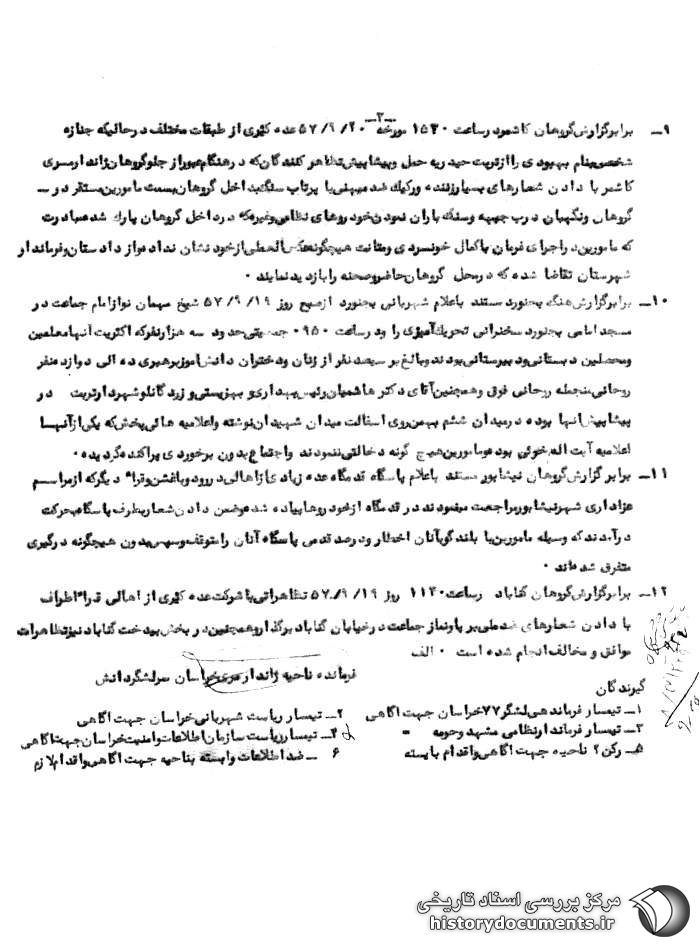 ـ۲ـ
۹ـ برابرگزارش گروهان کاشمر در ساعت ۱۵۳۰ مورخه ۵۷/۹/۲۰ عده کثیری از طبقات مختلف در حالیکه جنازه
شخصی بنام بهبودی را از تربت حیدریه حمل و پیشاپیش تظاهر کنندگان که در هنگام عبور از جلو گروهان ژاندارمری
کاشمر با دادن شعارهای بسیار زننده و رکیک ضد میهنی با پرتاب سنگ بداخل گروهان بسمت مامورین مستقر در ـ
گروهان و نگهبان درب جبهه و سنگ باران نمودن خودروهای نظامی وغیره که در داخل گروهان پارک شده مبادرت
که مامورین در اجرای فرمان با کمال خونسردی و متانت هیچگونه عکس العملی از خود نشان نداده و از دادستان و فرماندار
شهرستان تقاضا شده که در محل گروهان حاضر و صحنه را بازدید نمایند ۰
۱۰ـ برابرگزارش هنگ بجنورد مستند باعلام شهربانی بجنورد از صبح روز ۵۷/۹/۱۹ شیخ مهمان نواز امام جماعت در
مسجد امامی بجنورد سخنرانی تحریک آمیزی را و در ساعت ۰۹۵۰ جمعیتی حدود سه هزار نفر که اکثریت آنها معلمین
و محصلین دبستانی و دبیرستانی بودند و بالغ بر سیصد نفر از زنان و دختران دانش آموز برهبری ده الی دوازده نفر
روحانی منجمله روحانی فوق و همچنین آقای دکتر هاشمیان رئیس بهداری و بهزیستی و زردکانلو شهردار تربت در
پیشاپیش آنها بوده در میدان ششم بهمن روی اسفالت میدان شهیدان نوشته و اعلامیه هائی پخش که یکی از آنها
اعلامیه آیت اله خوئی بوده و مامورین هیچ گونه دخالتی ننمودند و اجتماع بدون برخوردی پراکنده گردیده ۰
۱۱ـ برابرگزارش گروهان نیشابور مستند باعلام پاسگاه قدمگاه عده زیادی از اهالی درود و باغشن و قراء دیگر که از مراسم
عزاداری شهر نیشابور مراجعت مینمودند در قدمگاه از خودروها پیاده شده و ضمن دادن شعار بطرف پاسگاه بحرکت
درآمدند که وسیله مامورین با بلندگو بآنان اخطار و در صد قدمی پاسگاه آنان را متوقف و سپس بدون هیچگونه درگیری
متفرق شده اند ۰
۱۲ـ برابرگزارش گروهان گناباد در ساعت ۱۱۳۰ روز ۵۷/۹/۱۹ تظاهراتی با شرکت عده کثیری از اهالی قراء اطراف
با دادن شعارهای ضد ملی بر پا و نماز جماعت در خیابان گناباد برگذار و همچنین در بخش بیدخت گناباد نیز تظاهرات
موافق و مخالف انجام شده است ۰ الف
فرمانده ناحیه ژاندارمری خراسان سرلشگر دانش
گیرندگان
۱ـ تیمسار فرماندهی لشگر ۷۷ خراسان جهت آگاهی
۲ـ تیمسار ریاست شهربانی خراسان جهت آگاهی
۳ـ تیمسار فرماندار نظامی مشهد و حومه =
۴ـ تیمسار ریاست سازمان اطلاعات و امنیت خراسان جهت آگاهی
۵ـ رکن ۲ ناحیه جهت آگاهی و اقدام بایسته
۶ ـ ضد اطلاعات وابسته بناحیه جهت آگاهی و اقدام لازم
مرکز بررسی اسناد تاریخی
historydocuments.ir